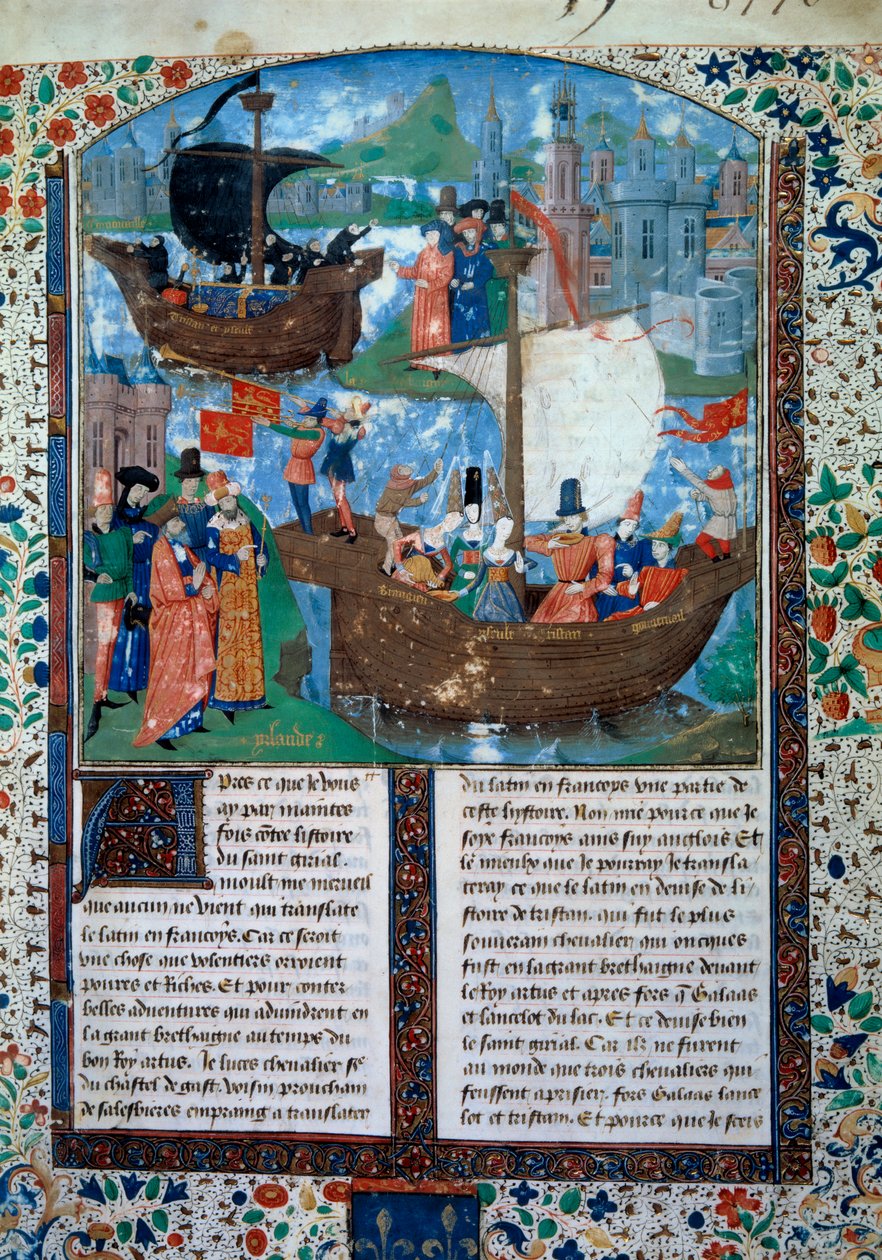 Tristan et yseult
yrlande
Brangien
yseult
tristan
gouuernail
Apres ce que Je vous
ay par maintes
fois conte listoire
du saint graal.
moult me merueil
que aucun ne vient qui translate
le latin en francoys. Car ce seroit
vne chose que volentiers orroient
poures et Riches. Et pour conter
belles aduentures qui aduindrent en
la grant brethaigne au temps du
bon Roy artus. Je luces cheualier sr̃
du chastel de gast. voisin prouchain
de salesbieres emprang a translater
du latin en francoys vne partie de
ceste hystoire. Non mie pource que Je
soye francoys ains suy angloys Et
le mieulx que Je pourray Je transla
teray ce que le latin en deuise de li
stoire de tristan. qui fut le plus
souuerain cheualier. qui oncques
fust en la grant brethaigne deuant
le Roy artus et apres fors q̃ Galaas
et lancelot du lac. Et ce deuise bien
le saint graal. Car ilz ne furent
au monde que trois cheualiers qui
feussent a prisier. fors Galaas lance
lot et tristan. Et pource que Je sceus